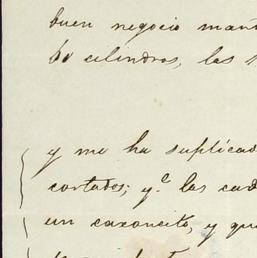 buen negocio mañ
60 cilindros, las
y me ha suplicad
cortados; y.ª las cad
un caxoncito, y qu